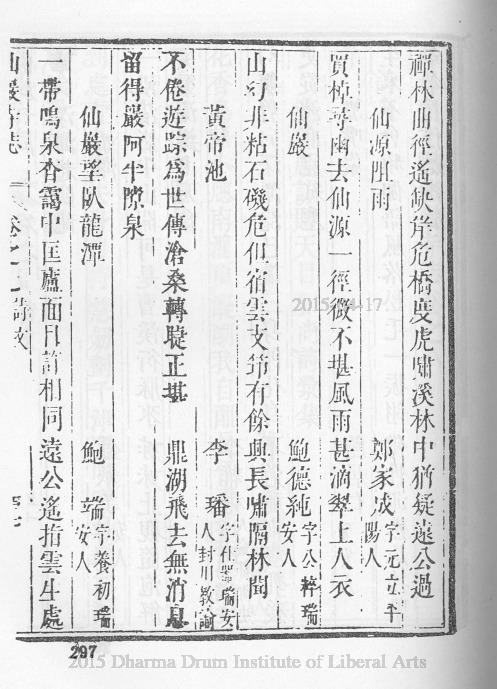 禪林曲徑遙缺岸危橋度虎嘯溪林中猶疑遠公過
仙源阻雨 鄭家成字元立平陽人
買棹尋幽去仙源一徑微不堪風雨甚滴翠上人衣
仙巖 鮑德純字公粹瑞安人
山勾非粘石磯危但宿雲支筇有餘興長嘯隔林聞
黃帝池 李璠字仕瑞安人封川教諭
不倦遊踪爲世傳滄桑轉睫正堪 鼎湖飛去無消息
留得巖阿半隙泉
仙巖望臥龍潭 鮑端字養初瑞安人
一帶鳴泉杳靄中匡廬面目許相同遠公遙指雲生處
仙巖寺志 卷之 詩
297
2015-04-17
2015 Dharma Drum Institute of Liberal Arts